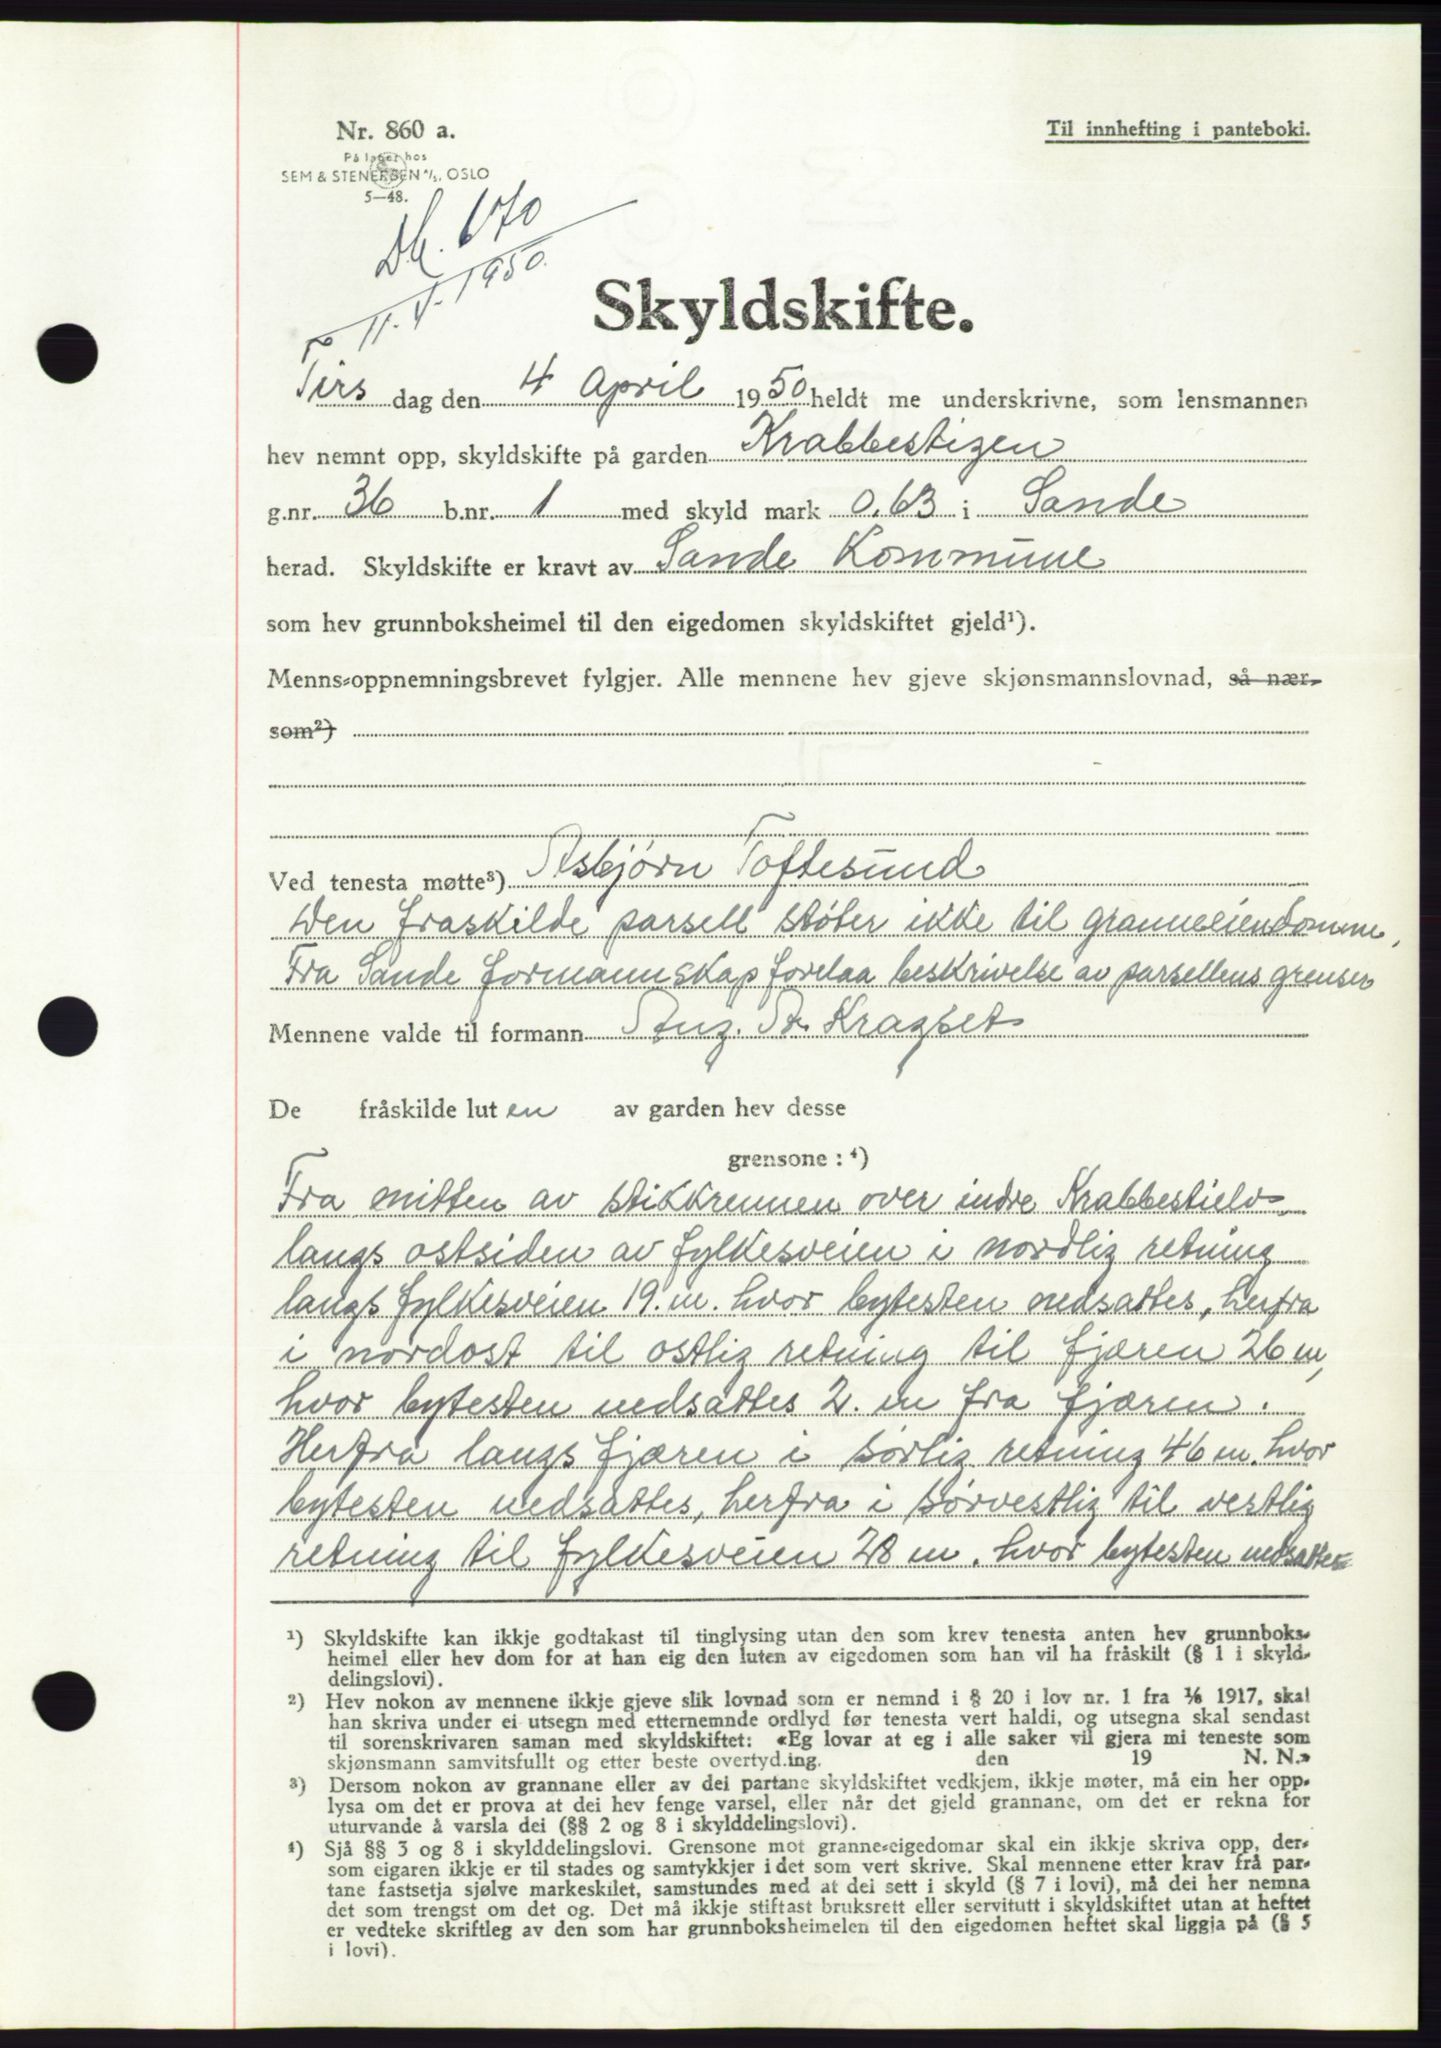 Nr. 860 a.
Til innhefting i panteboki.
På lager hos
SEM & STENERSEN A/S, OSLO
5—48.
Db. 670
11. V. 1950.
Skyldskifte.
Tirs dag den 4 April 1950 heldt me underskrivne, som lensmannen
hev nemnt opp, skyldskifte på garden Krabbestigen
g.nr. 36 b.nr. 1 med skyld mark 0,63 i Sande
herad. Skyldskifte er kravt av Sande Kommune
som hev grunnboksheimel til den eigedomen skyldskiftet gjeld¹).
Menns-oppnemningsbrevet fylgjer. Alle mennene hev gjeve skjønsmannslovnad, så nær-
som²)
Ved tenesta møtte³) Asbjørn Toftesund
Den fraskilde parsell støter ikke til granneeiendomme,
Fra Sande formannskap forelaa beskrivelse av parsellens grenser
Mennene valde til formann Aug. A. Kragset
De fråskilde luten av garden hev desse
grensone: ⁴)
Fra mitten av stikkrennen over indre Krabbestielv
langs ostsiden av fylkesveien i nordlig retning
langs fylkesveien 19. m. hvor bytesten nedsattes, herfra
i nordost til ostlig retning til fjæren 26 m,
hvor bytesten nedsattes 2. m fra fjæren.
Herfra langs fjæren i sørlig retning 46 m. hvor
bytesten nedsattes, herfra i sørvestlig til vestlig
retning til fylkesveien 28 m. hvor bytesten nedsattes
¹) Skyldskifte kan ikkje godtakast til tinglysing utan den som krev tenesta anten hev grunnboks-
heimel eller hev dom for at han eig den luten av eigedomen som han vil ha fråskilt (§ 1 i skyld-
delingslovi).
²) Hev nokon av mennene ikkje gjeve slik lovnad som er nemnd i § 20 i lov nr. 1 fra 1/6 1917, skal
han skriva under ei utsegn med etternemnde ordlyd før tenesta vert haldi, og utsegna skal sendast
til sorenskrivaren saman med skyldskiftet: «Eg lovar at eg i alle saker vil gjera mi teneste som
skjønsmann samvitsfullt og etter beste overtyd.ing. den 19 N. N.»
³) Dersom nokon av grannane eller av dei partane skyldskiftet vedkjem, ikkje møter, må ein her opp-
lysa om det er prova at dei hev fenge varsel, eller når det gjeld grannane, om det er rekna for
uturvande å varsla dei (§§ 2 og 8 i skylddelingslovi).
⁴) Sjå §§ 3 og 8 i skylddelingslovi. Grensone mot granne-eigedomar skal ein ikkje skriva opp, der-
som eigaren ikkje er til stades og samtykkjer i det som vert skrive. Skal mennene etter krav frå par-
tane fastsetja sjølve markeskilet, samstundes med at dei sett i skyld (§ 7 i lovi), må dei her nemna
det som trengst om det og. Det må ikkje stiftast bruksrett eller servitutt i skyldskiftet utan at heftet
er vedteke skriftleg av den som har grunnboksheimelen til den eigedomen heftet skal liggja på (§ 5
i lovi).